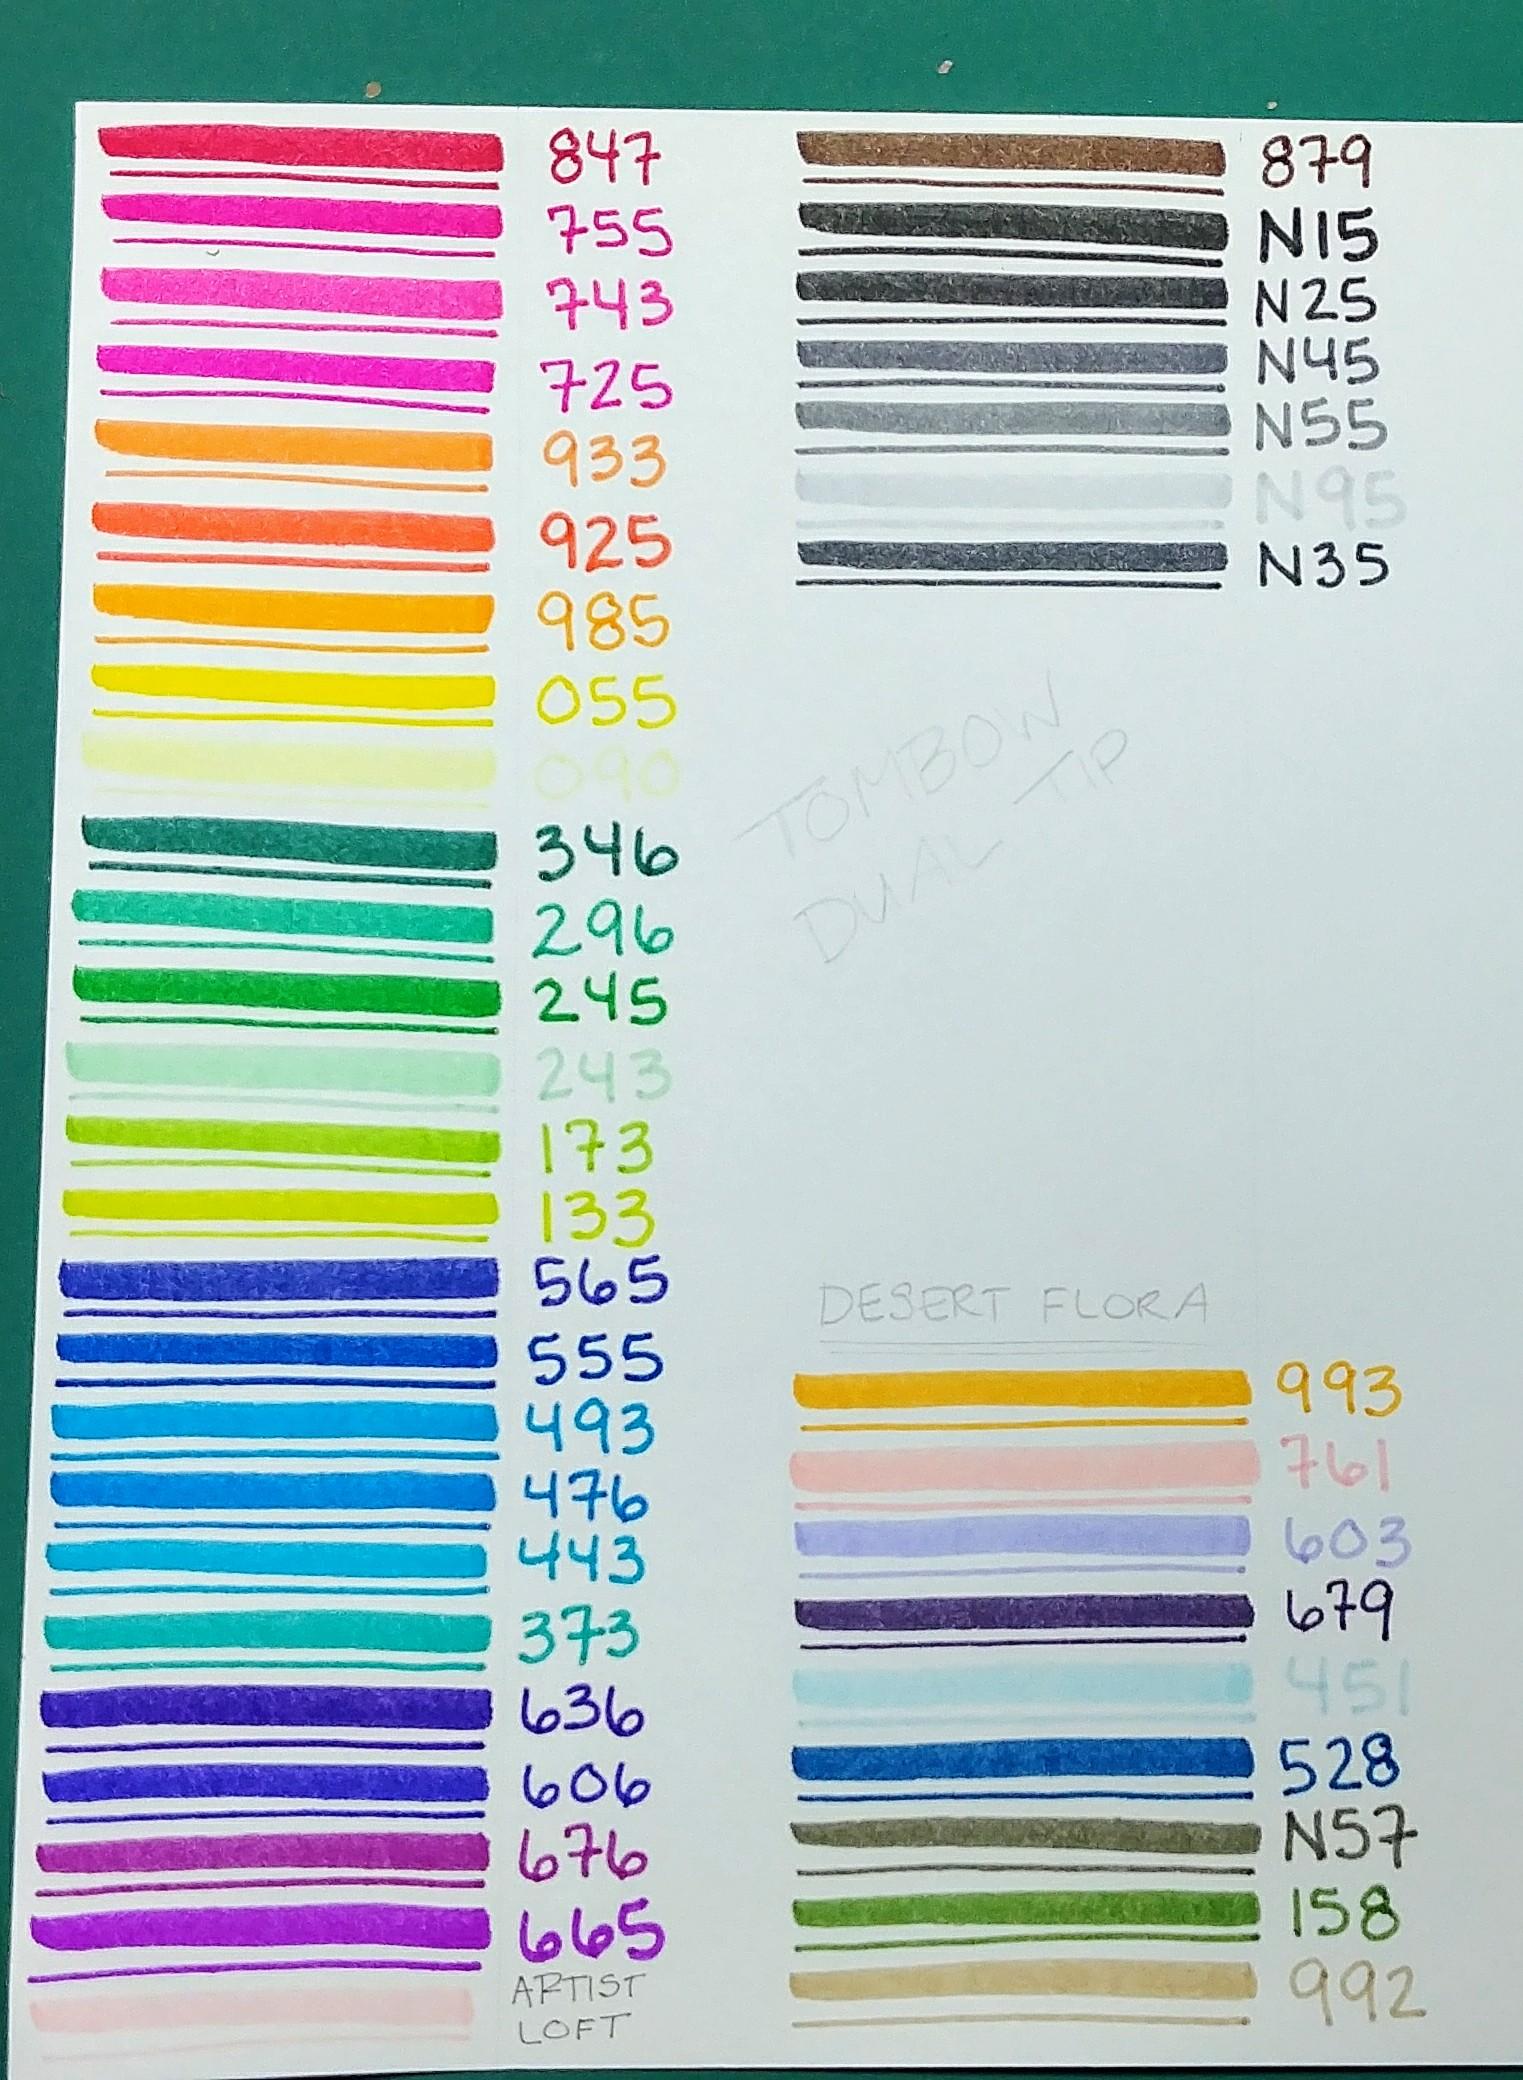 847
755
743
725
933
925
985
055
090
346
296
245
243
173
133
565
555
493
476
443
373
636
606
676
665
ARTIST
LOFT
879
N15
N25
N45
N55
N95
N35
TOMBOW
DUAL TIP
DESERT FLORA
993
761
603
679
451
528
N57
158
992